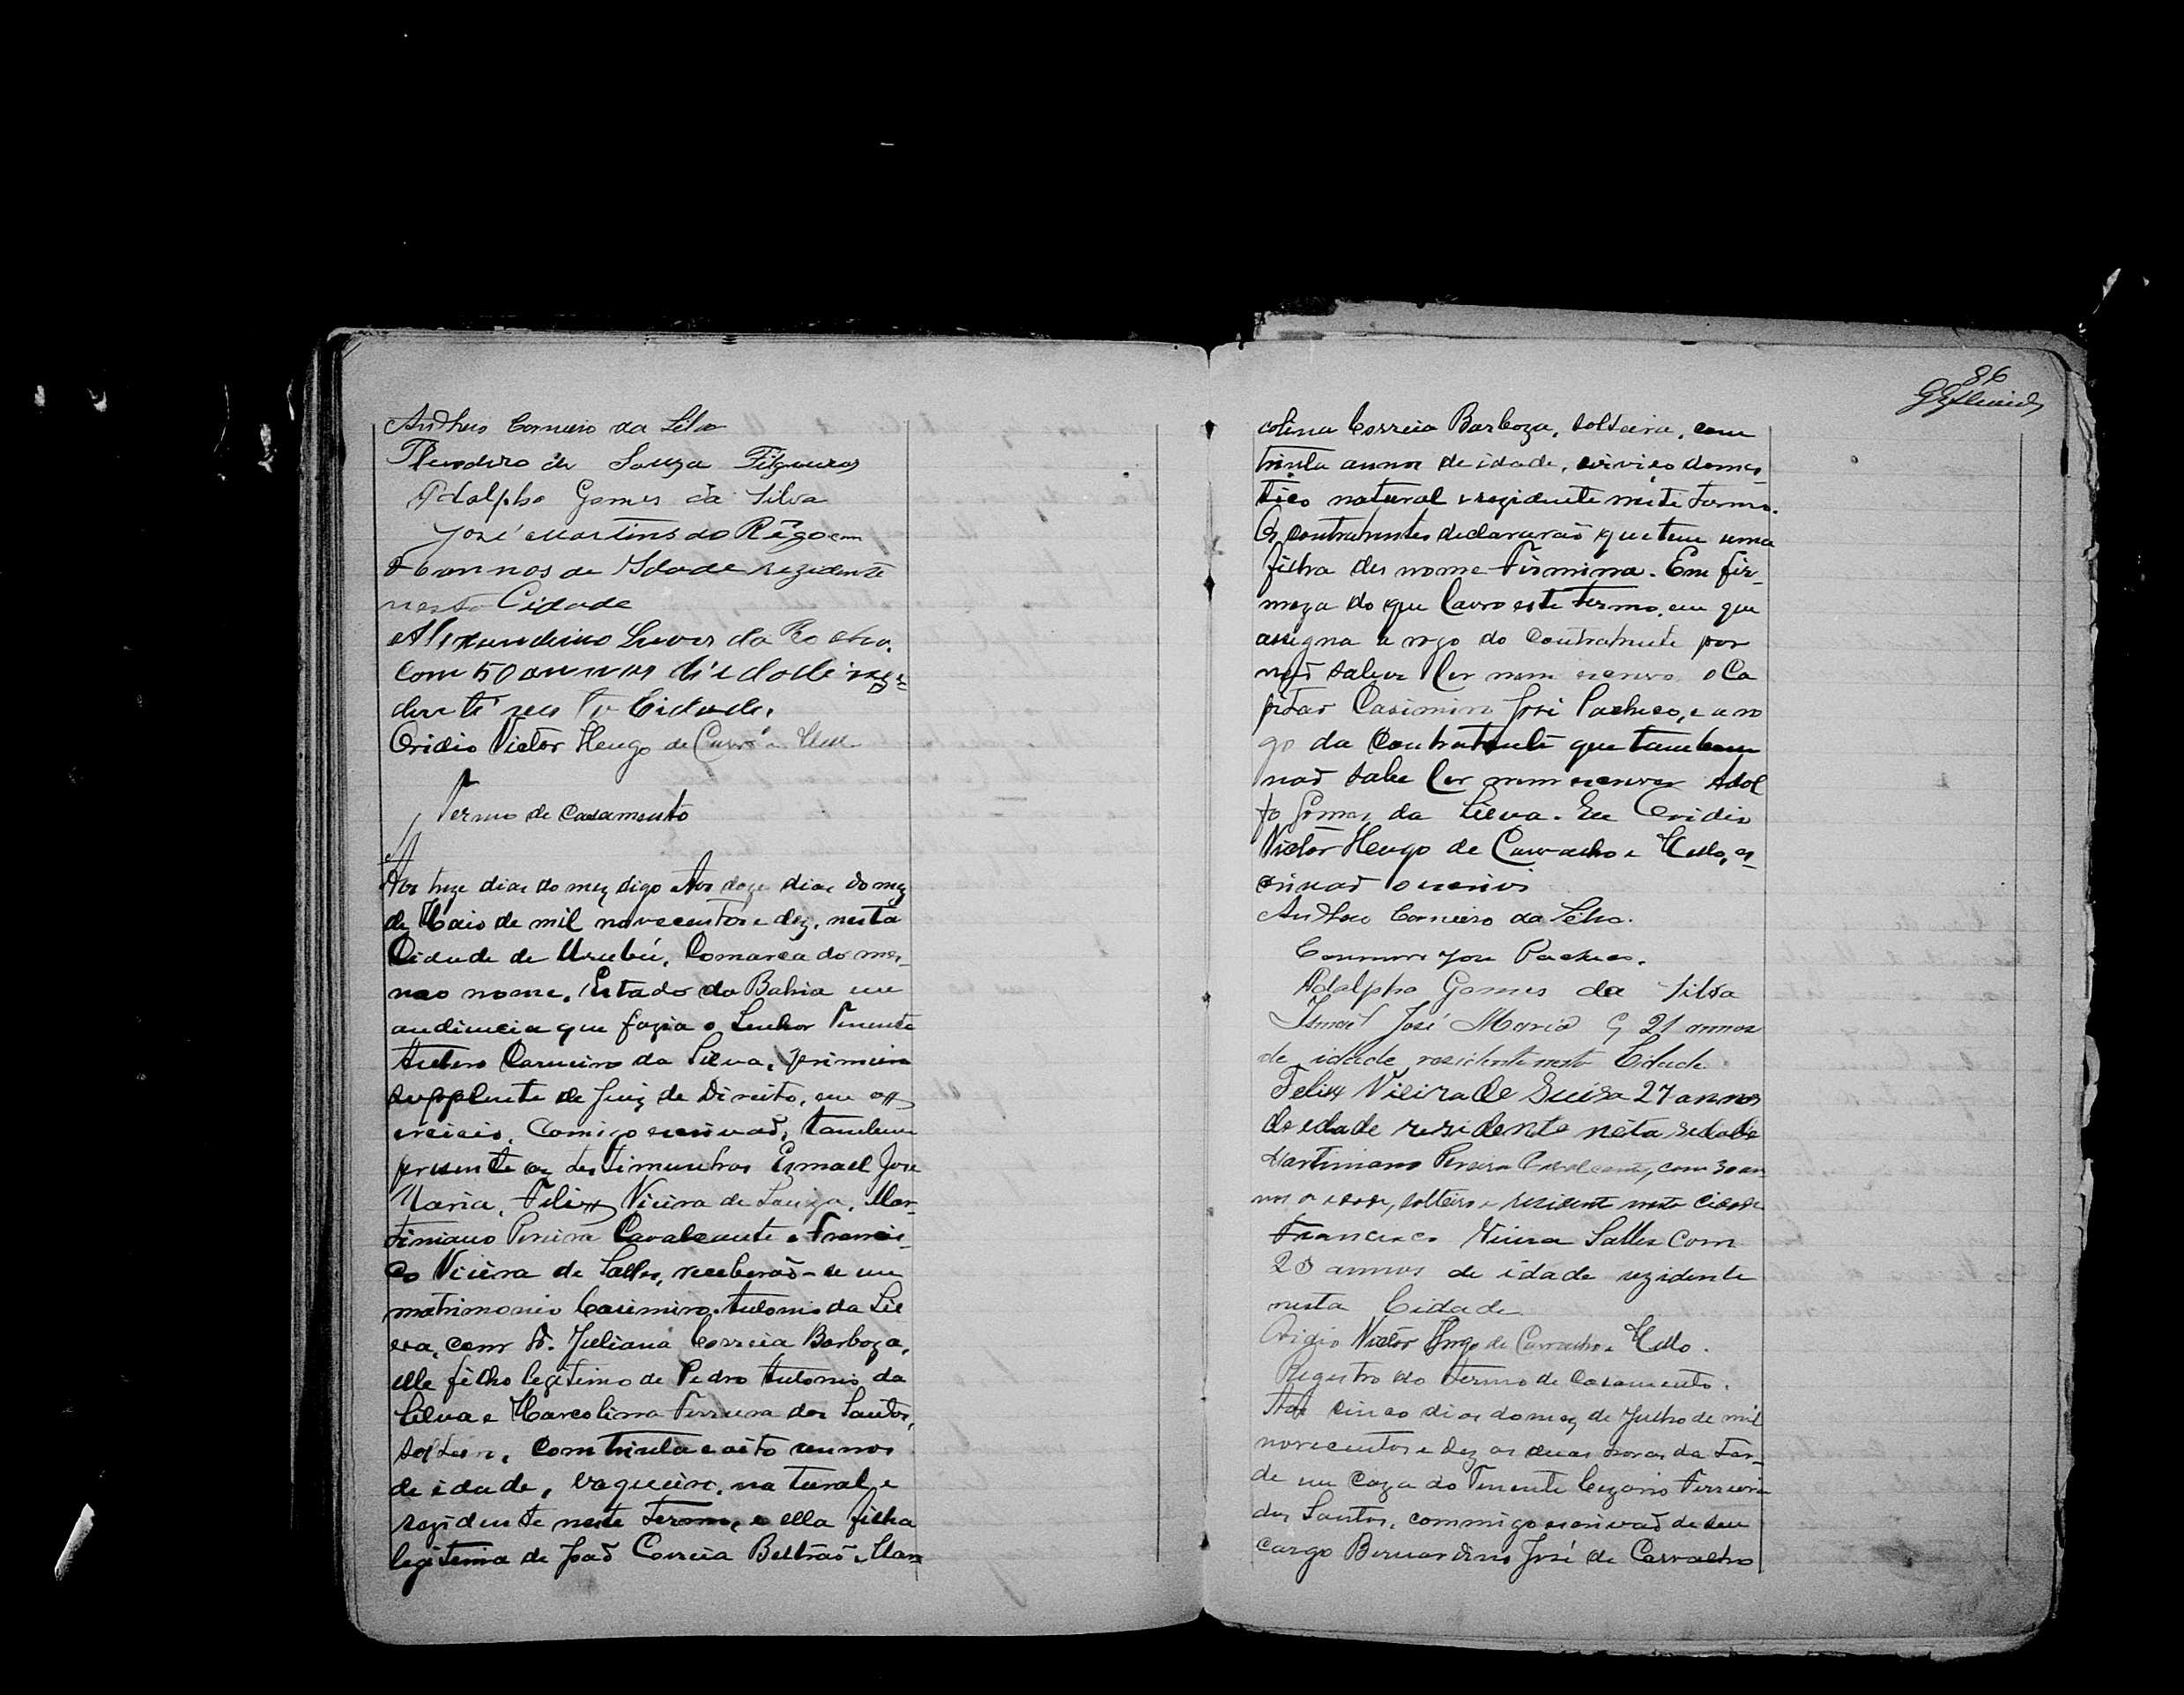 Anthero Carneiro da Silva
Theodoro de Souza Filgueiras
Adalpho Gomes da Silva
José Martins do Rêgo com
annos de Idade rezidente
nesta Cidade
Alexandrino da Rocha
Com 50 annos d'idade rezi-
dente nesta Cidade.
Ovidio Victor Heugo de
Termo de Casamento
Aos treze dias do mez digo Aos doze dias do mez
de Maio de mil novecentos e dez, nesta
Cidade de Urubú, Comarca do mes-
mo nome, Estado da Bahia em
audiencia que fazia o Senhor Tenente
Antero Carneiro da Silva, primeiro
supplente de Juiz de Direito, em ex-
ercicio, Comigo escrivaõ, tambem
presente as testimunhas Esmael José
Maria, Felix Vieira de Souza, Mar-
timiano Pereira Cavalcante e Francis-
co Vieira de Salles, receberaõ-se em
matrimonio Casimiro Antonio da Sil
va, com D. Juliana Correia Barboza,
elle filho legitimo de Pedro Antonio da
Silva e Marcolina Ferreira dos Santos,
solteiro, com trinta e oito annos
de idade, vaqueiro, natural e
rezidente neste Termo, e ella filha
legitima de Joaõ Correia Beltraõ e Mar
86
colina Correia Barboza, solteira, com
trinta annos de idade, serviço domes-
tico natural e rezidente neste Termo.
Os contratentes declararaõ que tem uma
filha des nome Firmina. Em fir-
meza do que lavro este termo, em que
assigna a rogo do Contratente por
naõ saber ler nem escrever o Ca
pitaõ Casimiro José Pacheco, e a ro
go da Contratente que tambem
naõ sabe ler nem escrever Adol
fo Gomes da Silva. Eu Ovidio
Victor Heugo de Carvalho e Mello, es-
crivaõ o escrivi
Anthero Carneiro da Silva.
Casimiro José Pacheco.
Adalpho Gomes da Silva
Ismael José Maria 21 annos
de idade residente nesta Cidade
Felix Vieira de Suiza 27 annos
de edade residente nesta sidade
Martiniano Pereira Cavalcante, com 30 an
nos de edade, solteiro e residente nesta cidade
Francisco Vieira Salles com
28 annos de idade rezidente
nesta Cidade
Ovidio Victor Hugo de Carvalho e Mello.
Registro do termo de Casamento.
Aos cinco dias do mez de Julho de mil
novecentos e dez as duas horas da tar-
de em Caza do Tenente Cezario Ferreira
dos Santos, commigo escrivaõ de seu
cargo Bernardino José de Carvalho